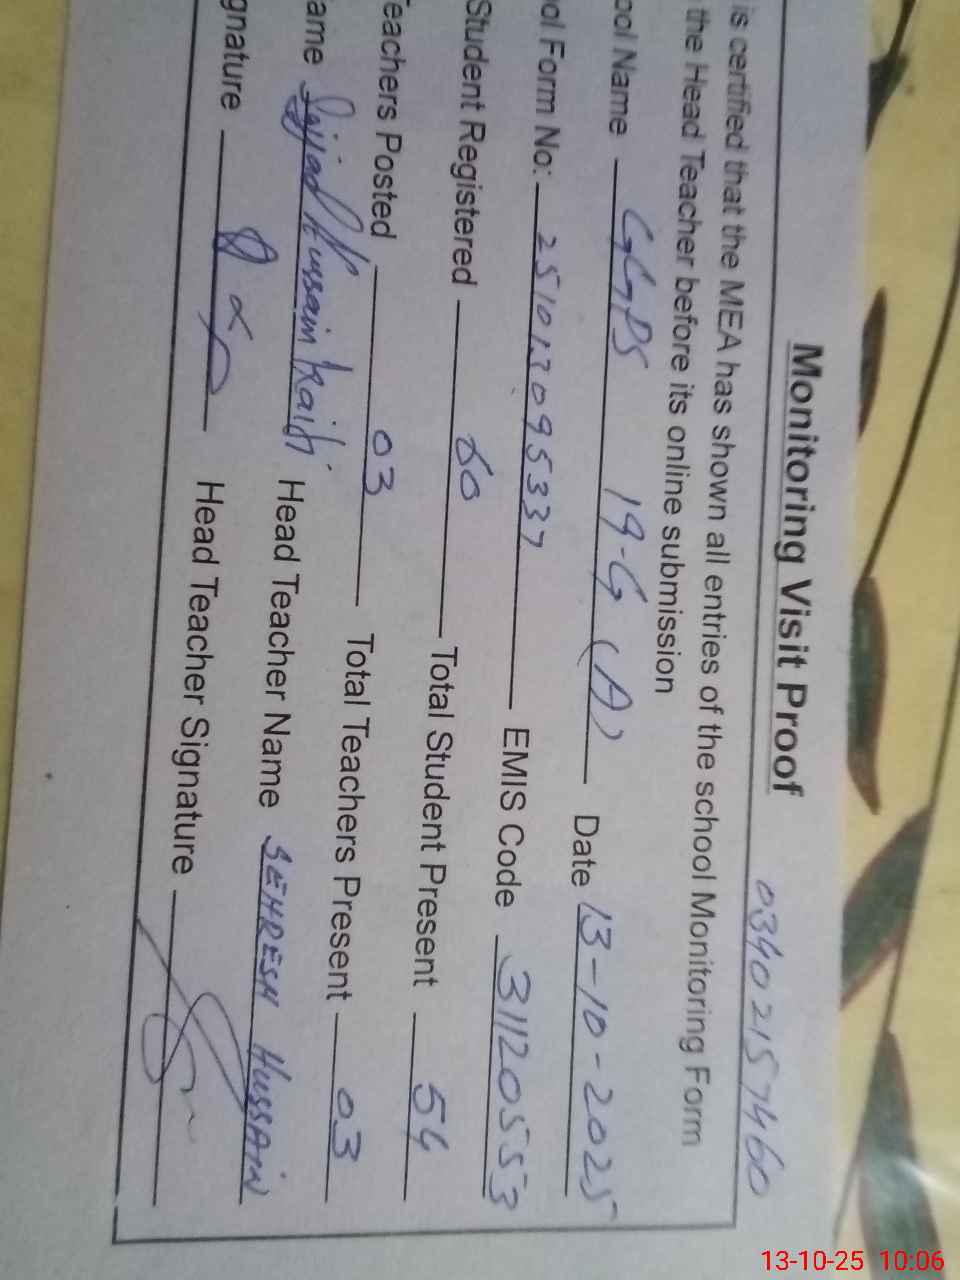 Monitoring Visit Proof 03402157460
is certified that the MEA has shown all entries of the school Monitoring Form
the Head Teacher before its online submission
ool Name GGPS 19-G (A) Date 13-10-2025
ol Form No: 251013095337 EMIS Code 31120553
Student Registered 60 Total Student Present 54
Teachers Posted 03 Total Teachers Present 03
ame Sajjad Hussain Head Teacher Name SEHRESH HUSSAIN
gnature Head Teacher Signature
13-10-25 10:06